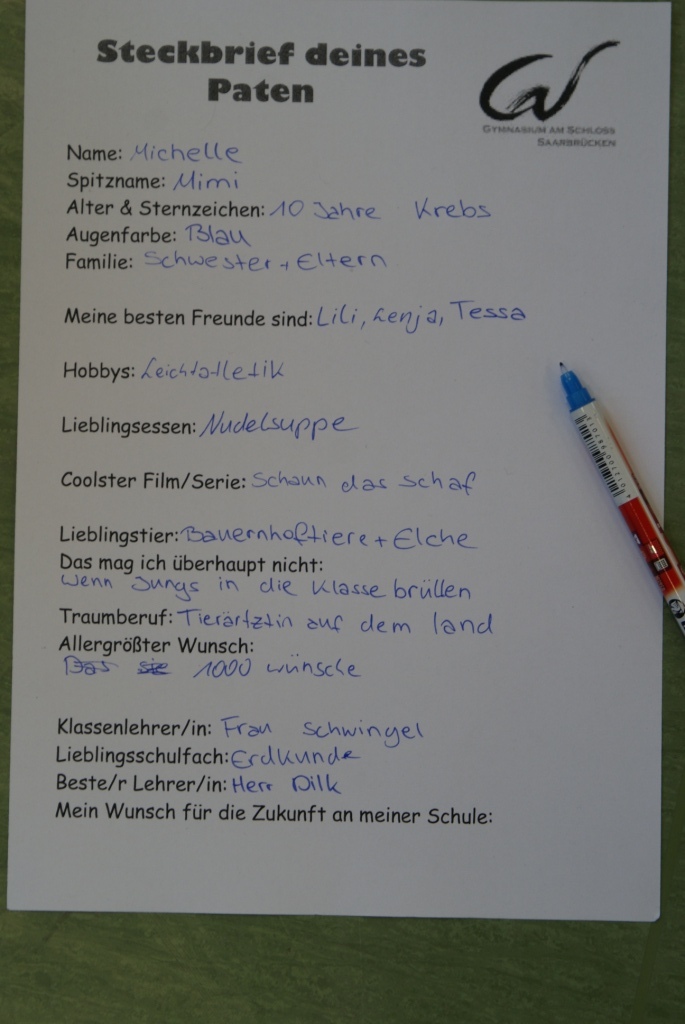 Steckbrief deines
Paten
GYMNASIUM AM SCHLOSS
SAARBRÜCKEN
Name: Michelle
Spitzname: Mimi
Alter & Sternzeichen: 10 Jahre Krebs
Augenfarbe: Blau
Familie: Schwester + Eltern
Meine besten Freunde sind: Lili, Lenja, Tessa
Hobbys: Leichtatletik
Lieblingsessen: Nudelsuppe
Coolster Film/Serie: Schaun das schaf
Lieblingstier: Bauernhoftiere + Elche
Das mag ich überhaupt nicht:
wenn Jungs in die Klasse brüllen
Traumberuf: Tierärtztin auf dem land
Allergrößter Wunsch:
1000 wünsche
Klassenlehrer/in: Frau Schwingel
Lieblingsschulfach: Erdkunde
Beste/r Lehrer/in: Herr Dilk
Mein Wunsch für die Zukunft an meiner Schule: